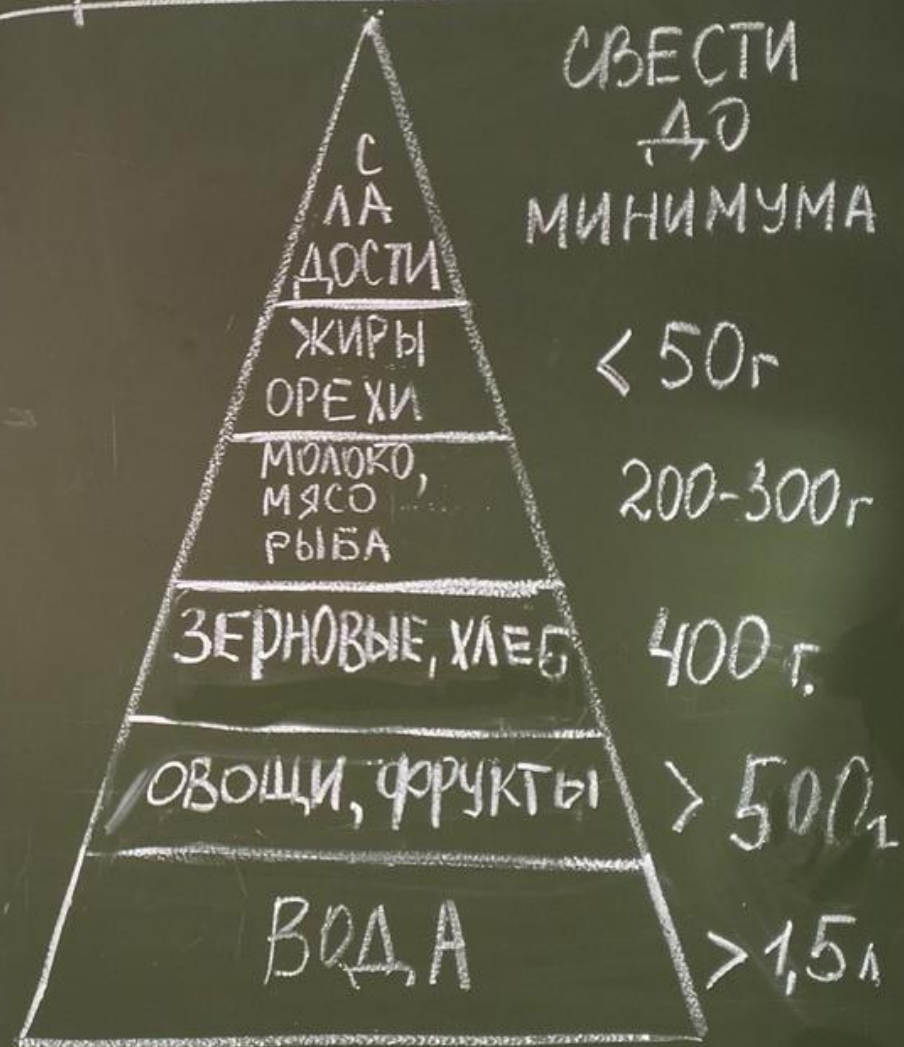 СВЕСТИ
ДО
МИНИМУМА
С
ЛА
ДОСТИ
ЖИРЫ
ОРЕХИ
< 50г
МОЛОКО,
МЯСО
РЫБА
200-300г
ЗЕРНОВЫЕ, ХЛЕБ
400 г.
ОВОЩИ, ФРУКТЫ
> 500г
ВОДА
>1,5л